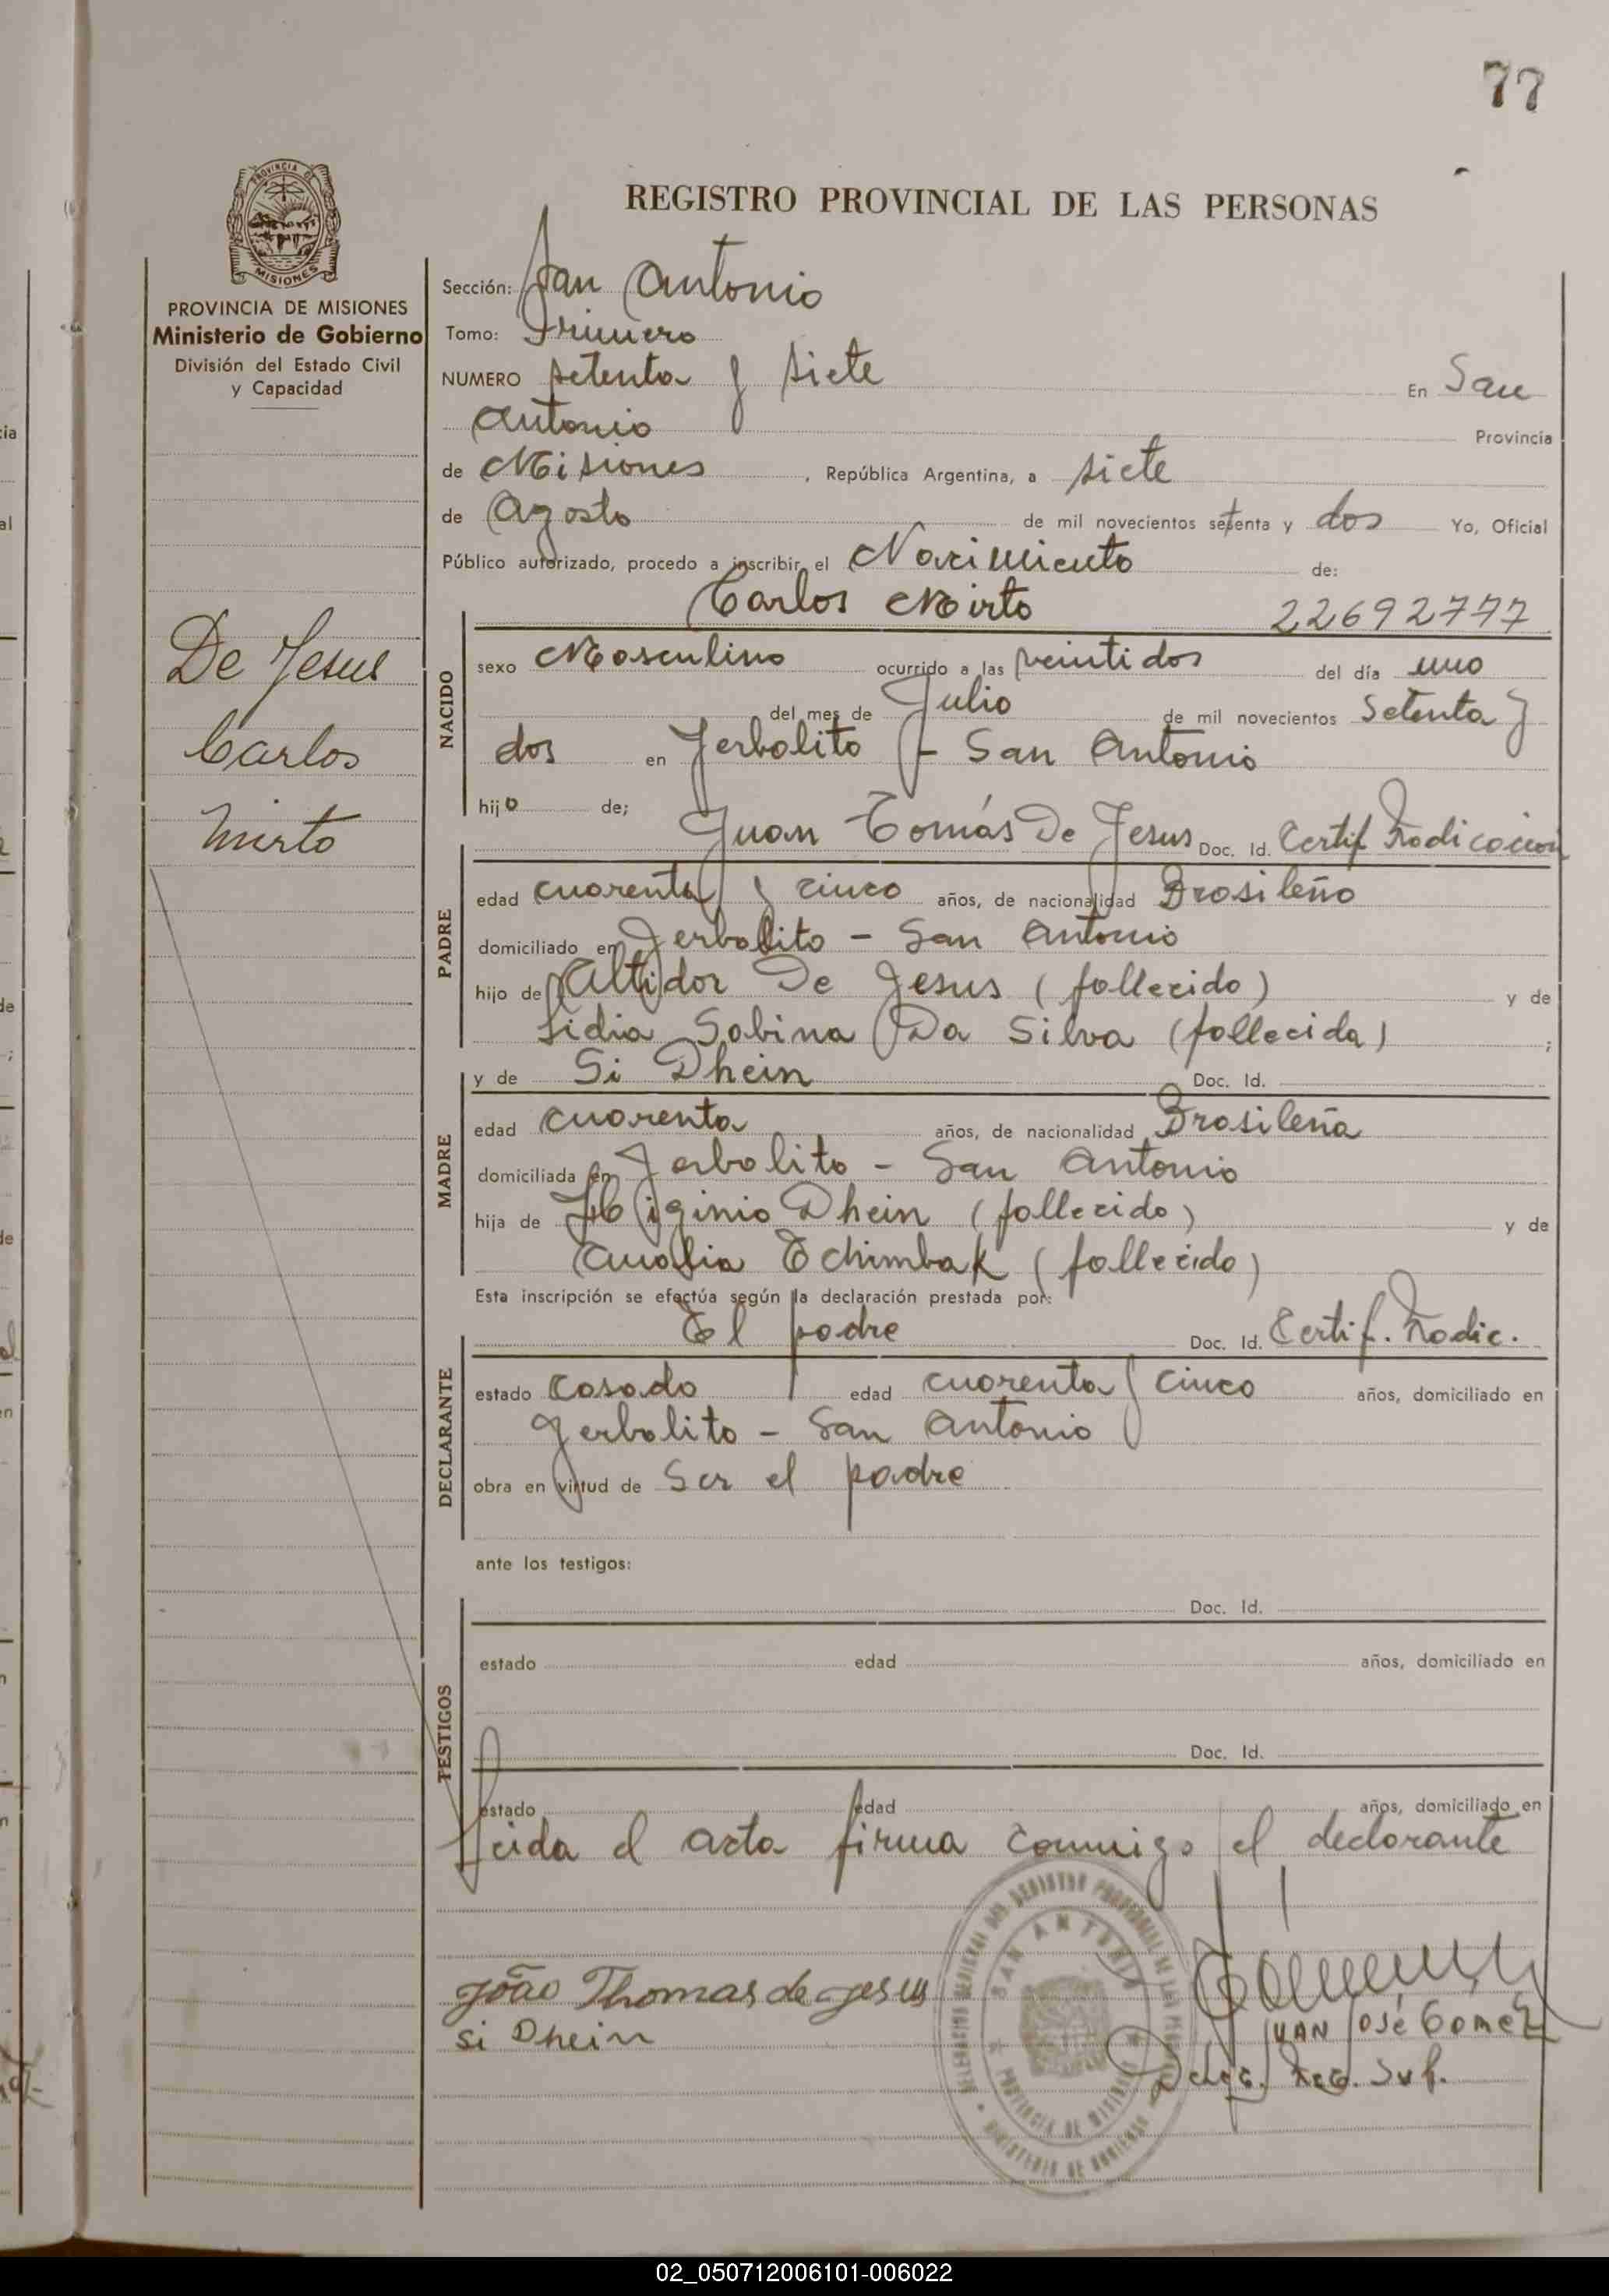 77
PROVINCIA DE
MISIONES
REGISTRO PROVINCIAL DE LAS PERSONAS
PROVINCIA DE MISIONES
Ministerio de Gobierno
División del Estado Civil
y Capacidad
De Jesus
Carlos
Mirto
Sección: San Antonio
Tomo: Primero
NUMERO setenta y siete En San
Antonio Provincia
de Misiones, República Argentina, a siete
de Agosto de mil novecientos setenta y dos Yo, Oficial
Público autorizado, procedo a inscribir el Nacimiento de:
Carlos Mirto 22692777
NACIDO
sexo Masculino ocurrido a las veintidos del día uno
del mes de Julio de mil novecientos Setenta y
dos en Yerbalito - San Antonio
hijo de;
Juan Tomás De Jesus Doc. Id. Certif Radicacion
PADRE
edad cuarenta y cinco años, de nacionalidad Brasileño
domiciliado en Yerbalito - San Antonio
hijo de Altidor De Jesus (fallecido) y de
Lidia Sabina Da Silva (fallecida) ;
y de Si Dhein Doc. Id.
MADRE
edad cuarenta años, de nacionalidad Brasileña
domiciliada en Yerbalito - San Antonio
hija de Higinio Dhein (fallecido) y de
Amalia Echimbak (fallecido)
Esta inscripción se efectúa según la declaración prestada por:
El padre Doc. Id. Certif. Radic.
DECLARANTE
estado Casado edad cuarenta y cinco años, domiciliado en
Yerbalito - San Antonio
obra en virtud de Ser el padre
ante los testigos:
Doc. Id.
TESTIGOS
estado edad años, domiciliado en
Doc. Id.
estado edad años, domiciliado en
Leida el acta firma conmigo el declarante
João Thomas de Jesus
Si Dhein
SAN ANTONIO
PROVINCIA DE MISIONES
MINISTERIO DE GOBIERNO
JUAN José Gomez
Deleg. Reg. Sup.
02_050712006101-006022